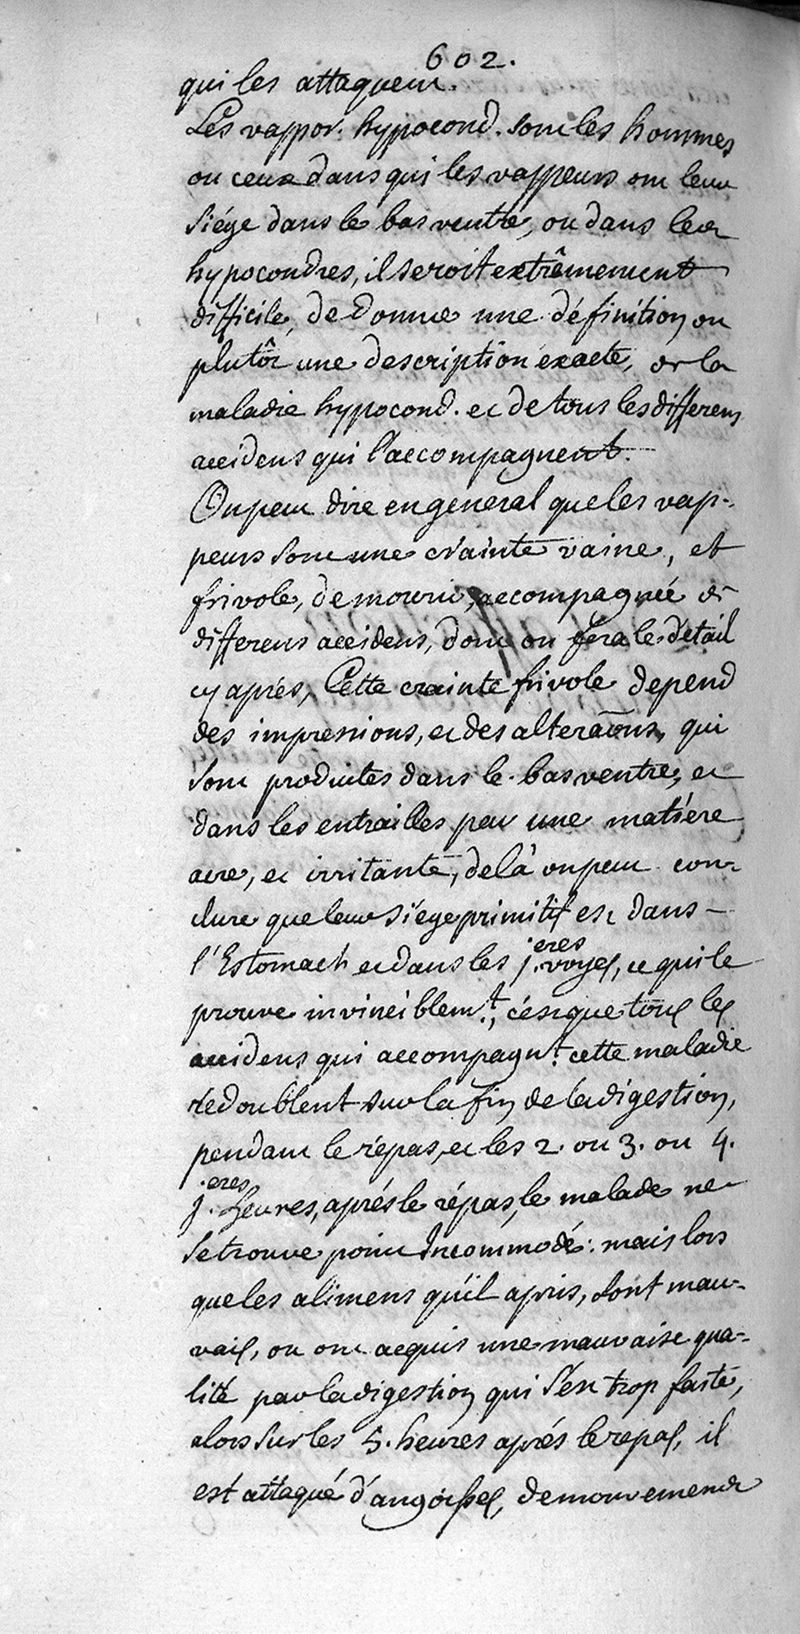 602.
qui les attaquent.
Les vappor. hyppocond. sont les hommes
ou ceux dans qui les vappeurs ont leur
siége dans le bas ventre, ou dans leur
hypocondres, il seroit extrêmement
difficile, de donner une définition ou
plutôt une description exacte, de la
maladie hypocond. et de tous les differens
accidens qui l'accompagnent.
On peut dire en general que les vap-
peurs sont une crainte vaine, et
frivole, de mourir, accompagnée de
differens accidens, dont on fera le detail
cy aprés, Cette crainte frivole depend
des impressions, et des alteraõns, qui
sont produites dans le bas ventre, et
dans les entrailles par une matiére
acre, et irritante, delà on peut con-
clure que leur siége primitif est dans
l'Estomach et dans les j.eres voyes, ce qui le
prouve invinciblem.t, c'est que tous les
accidens qui accompagn.t cette maladie
rédoublent sur la fin de la digestion,
pendant le répas, et les 2. ou 3. ou 4.
j.eres heures, aprés le répas, le malade ne
se trouve point Incommodé: mais lors
que les alimens qu'il a pris, sont mau-
vais, ou ont acquis une mauvaise qua-
lité par la digestion qui s'est trop faite,
alors sur les 5. heures aprés le repas, il
est attaqué d'angoisses, de mouvemens